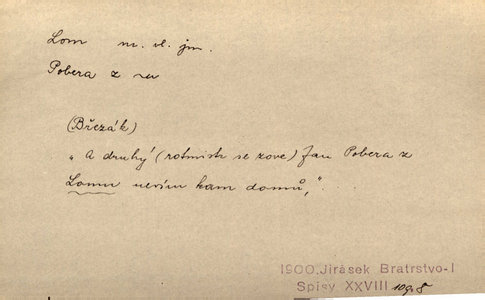 Lom m. vl. jm.
Pobera z ~u
(Březák)
„A druhý (rotmistr se zove) Jan Pobera z
Lomu nevím kam domů,".
1900. Jirásek Bratrstvo-I
Spisy XXVIII